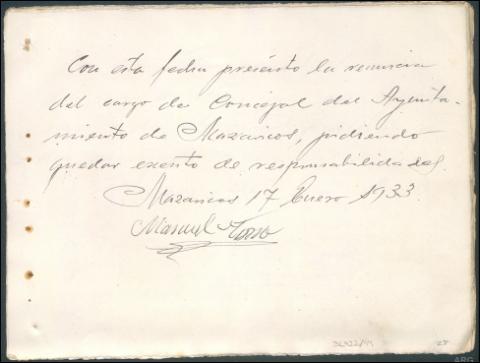 Con esta fecha presento la renuncia
del cargo de Concejal del Ayunta-
miento de Mazaricos, pidiendo
quedar exento de responsabilidades.
Mazaricos 17 Enero 1933
Manuel
28
ARG